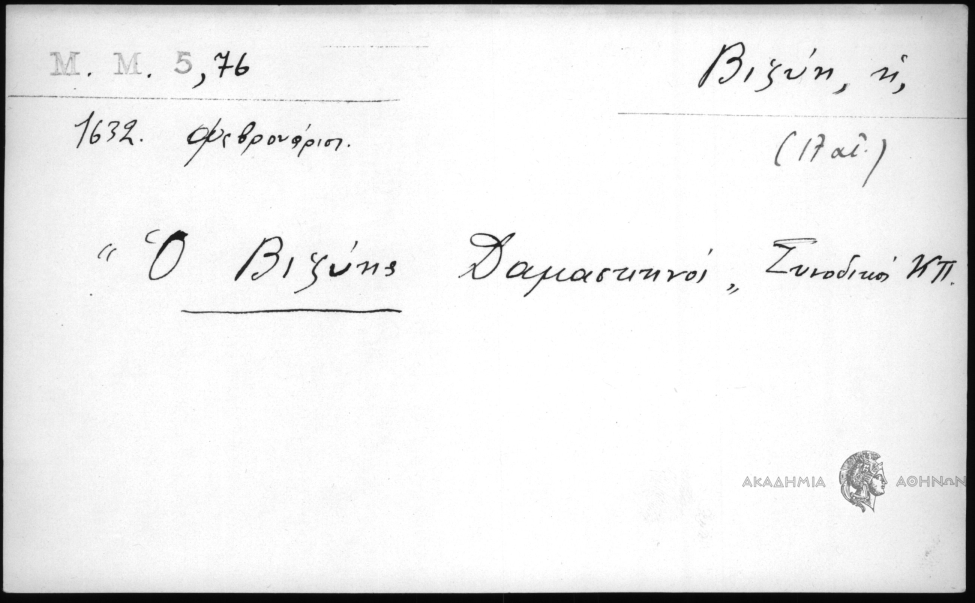 M. M. 5,76
Βιζύη, ἡ,
1632. Φεβρουάριος.
(17 αἰ.)
"Ὁ Βιζύης Δαμασκηνός„ Συνοδικός ΚΠ.
ΑΚΑΔΗΜΙΑ ΑΘΗΝΩΝ